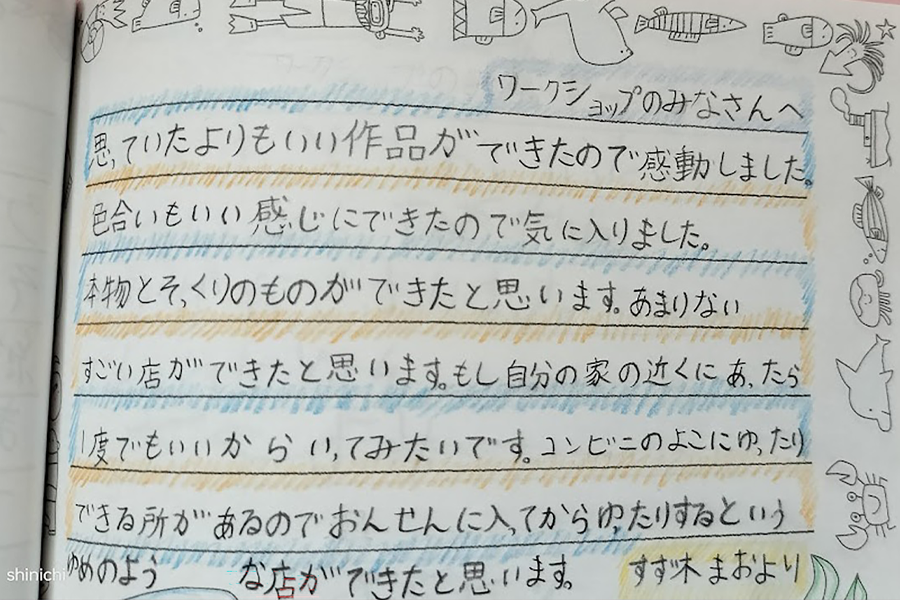 ワークショップのみなさんへ
思っていたよりもいい作品ができたので感動しました。
色合いもいい感じにできたので気に入りました。
本物とそっくりのものができたと思います。あまりない
すごい店ができたと思います。もし自分の家の近くにあったら
1度でもいいからいってみたいです。コンビニのよこにゆったり
できる所があるのでおんせんに入ってからゆったりするという
ゆめのような店ができたと思います。 すず木まおより
shinichi